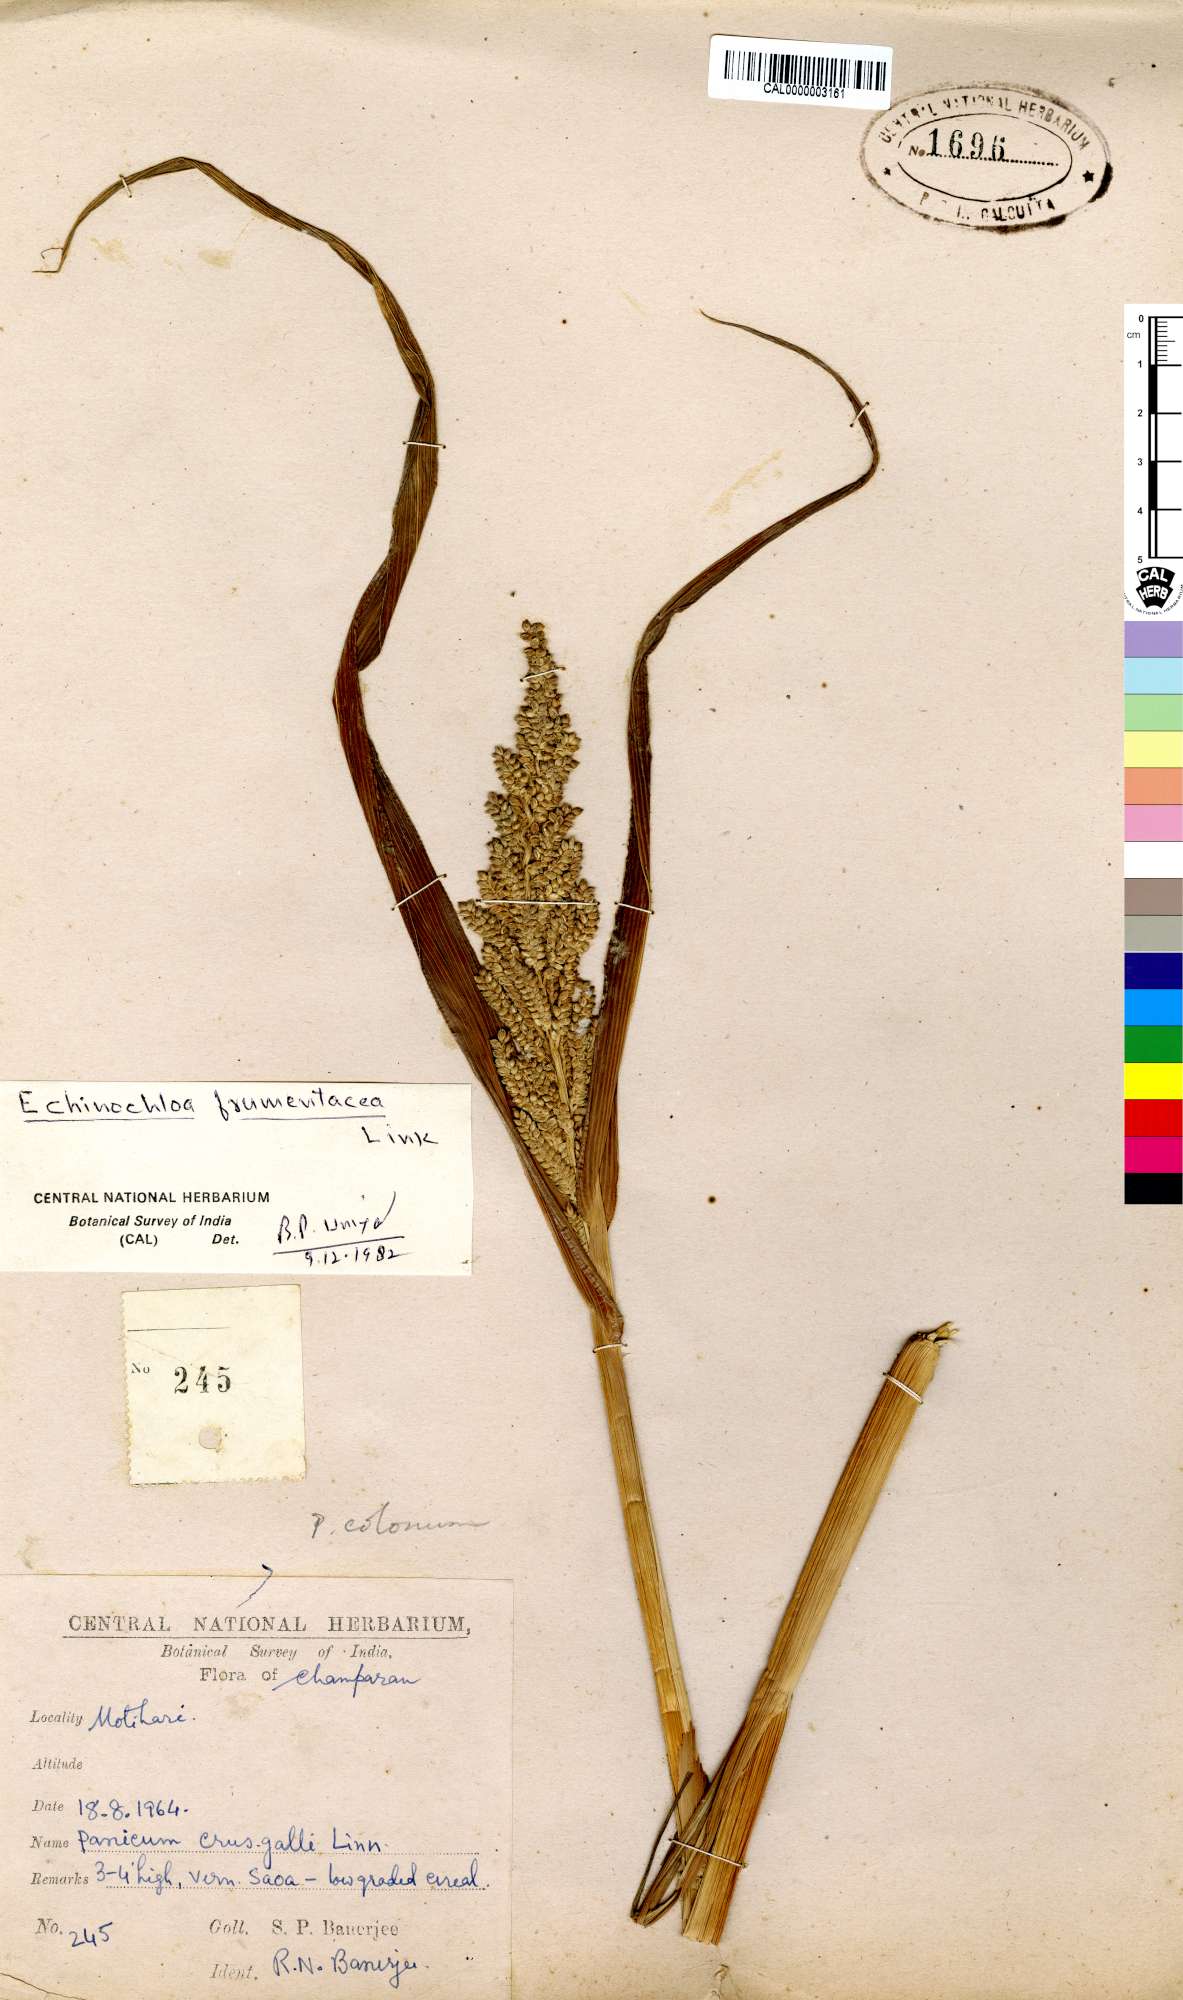 CAL0000003161
CENTRAL NATIONAL HERBARIUM
No 1696
CALCUTTA
0
cm
1
2
3
4
5
CAL
HERB
Echinochloa frumentacea
Link
CENTRAL NATIONAL HERBARIUM
Botanical Survey of India
(CAL) Det. B.P. Uniyal
9.12.1982
No 245
P. colonum
CENTRAL NATIONAL HERBARIUM,
Botanical Survey of India,
Flora of Champaran
Locality Motihari.
Altitude
Date 18.8.1964.
Name Panicum crus-galli Linn.
Remarks 3-4' high, Vern. Saoa – low graded cereal.
No. 245 Coll. S. P. Banerjee
Ident. R.N. Banerjee.